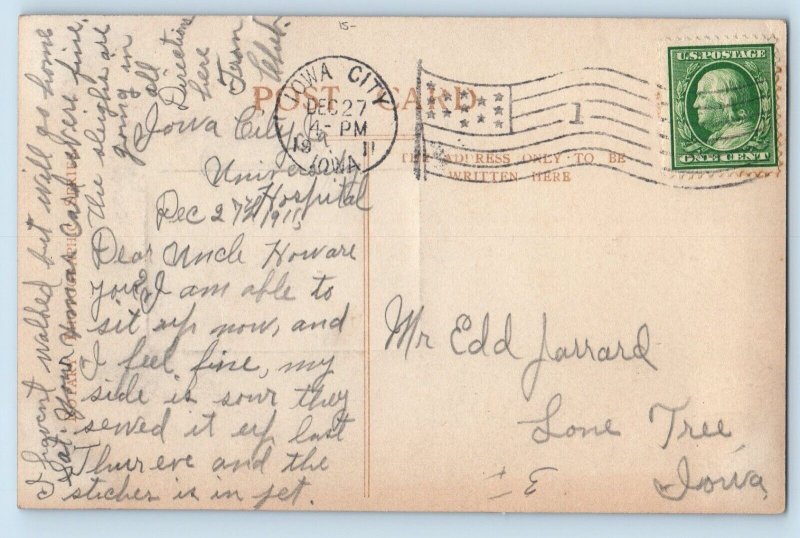 15-
POST CARD
THE ADDRESS ONLY TO BE
WRITTEN HERE
IOWA CITY
DEC 27
4- PM
1911
IOWA
1
U.S. POSTAGE
ONE CENT
Iowa City,
University
Hospital
Dec 27th/1911
Dear Uncle How are
you? I am able to
sit up now, and
I feel fine, my
side is sour they
sewed it up last
Thur eve and the
stiches is in yet.
I havent walked but will go home
Sat. Your Xmas Cards were fine,
the sleighs are
going in
all
Directions
here
Turn
Mr Edd Jarrard
Lone Tree,
Iowa,